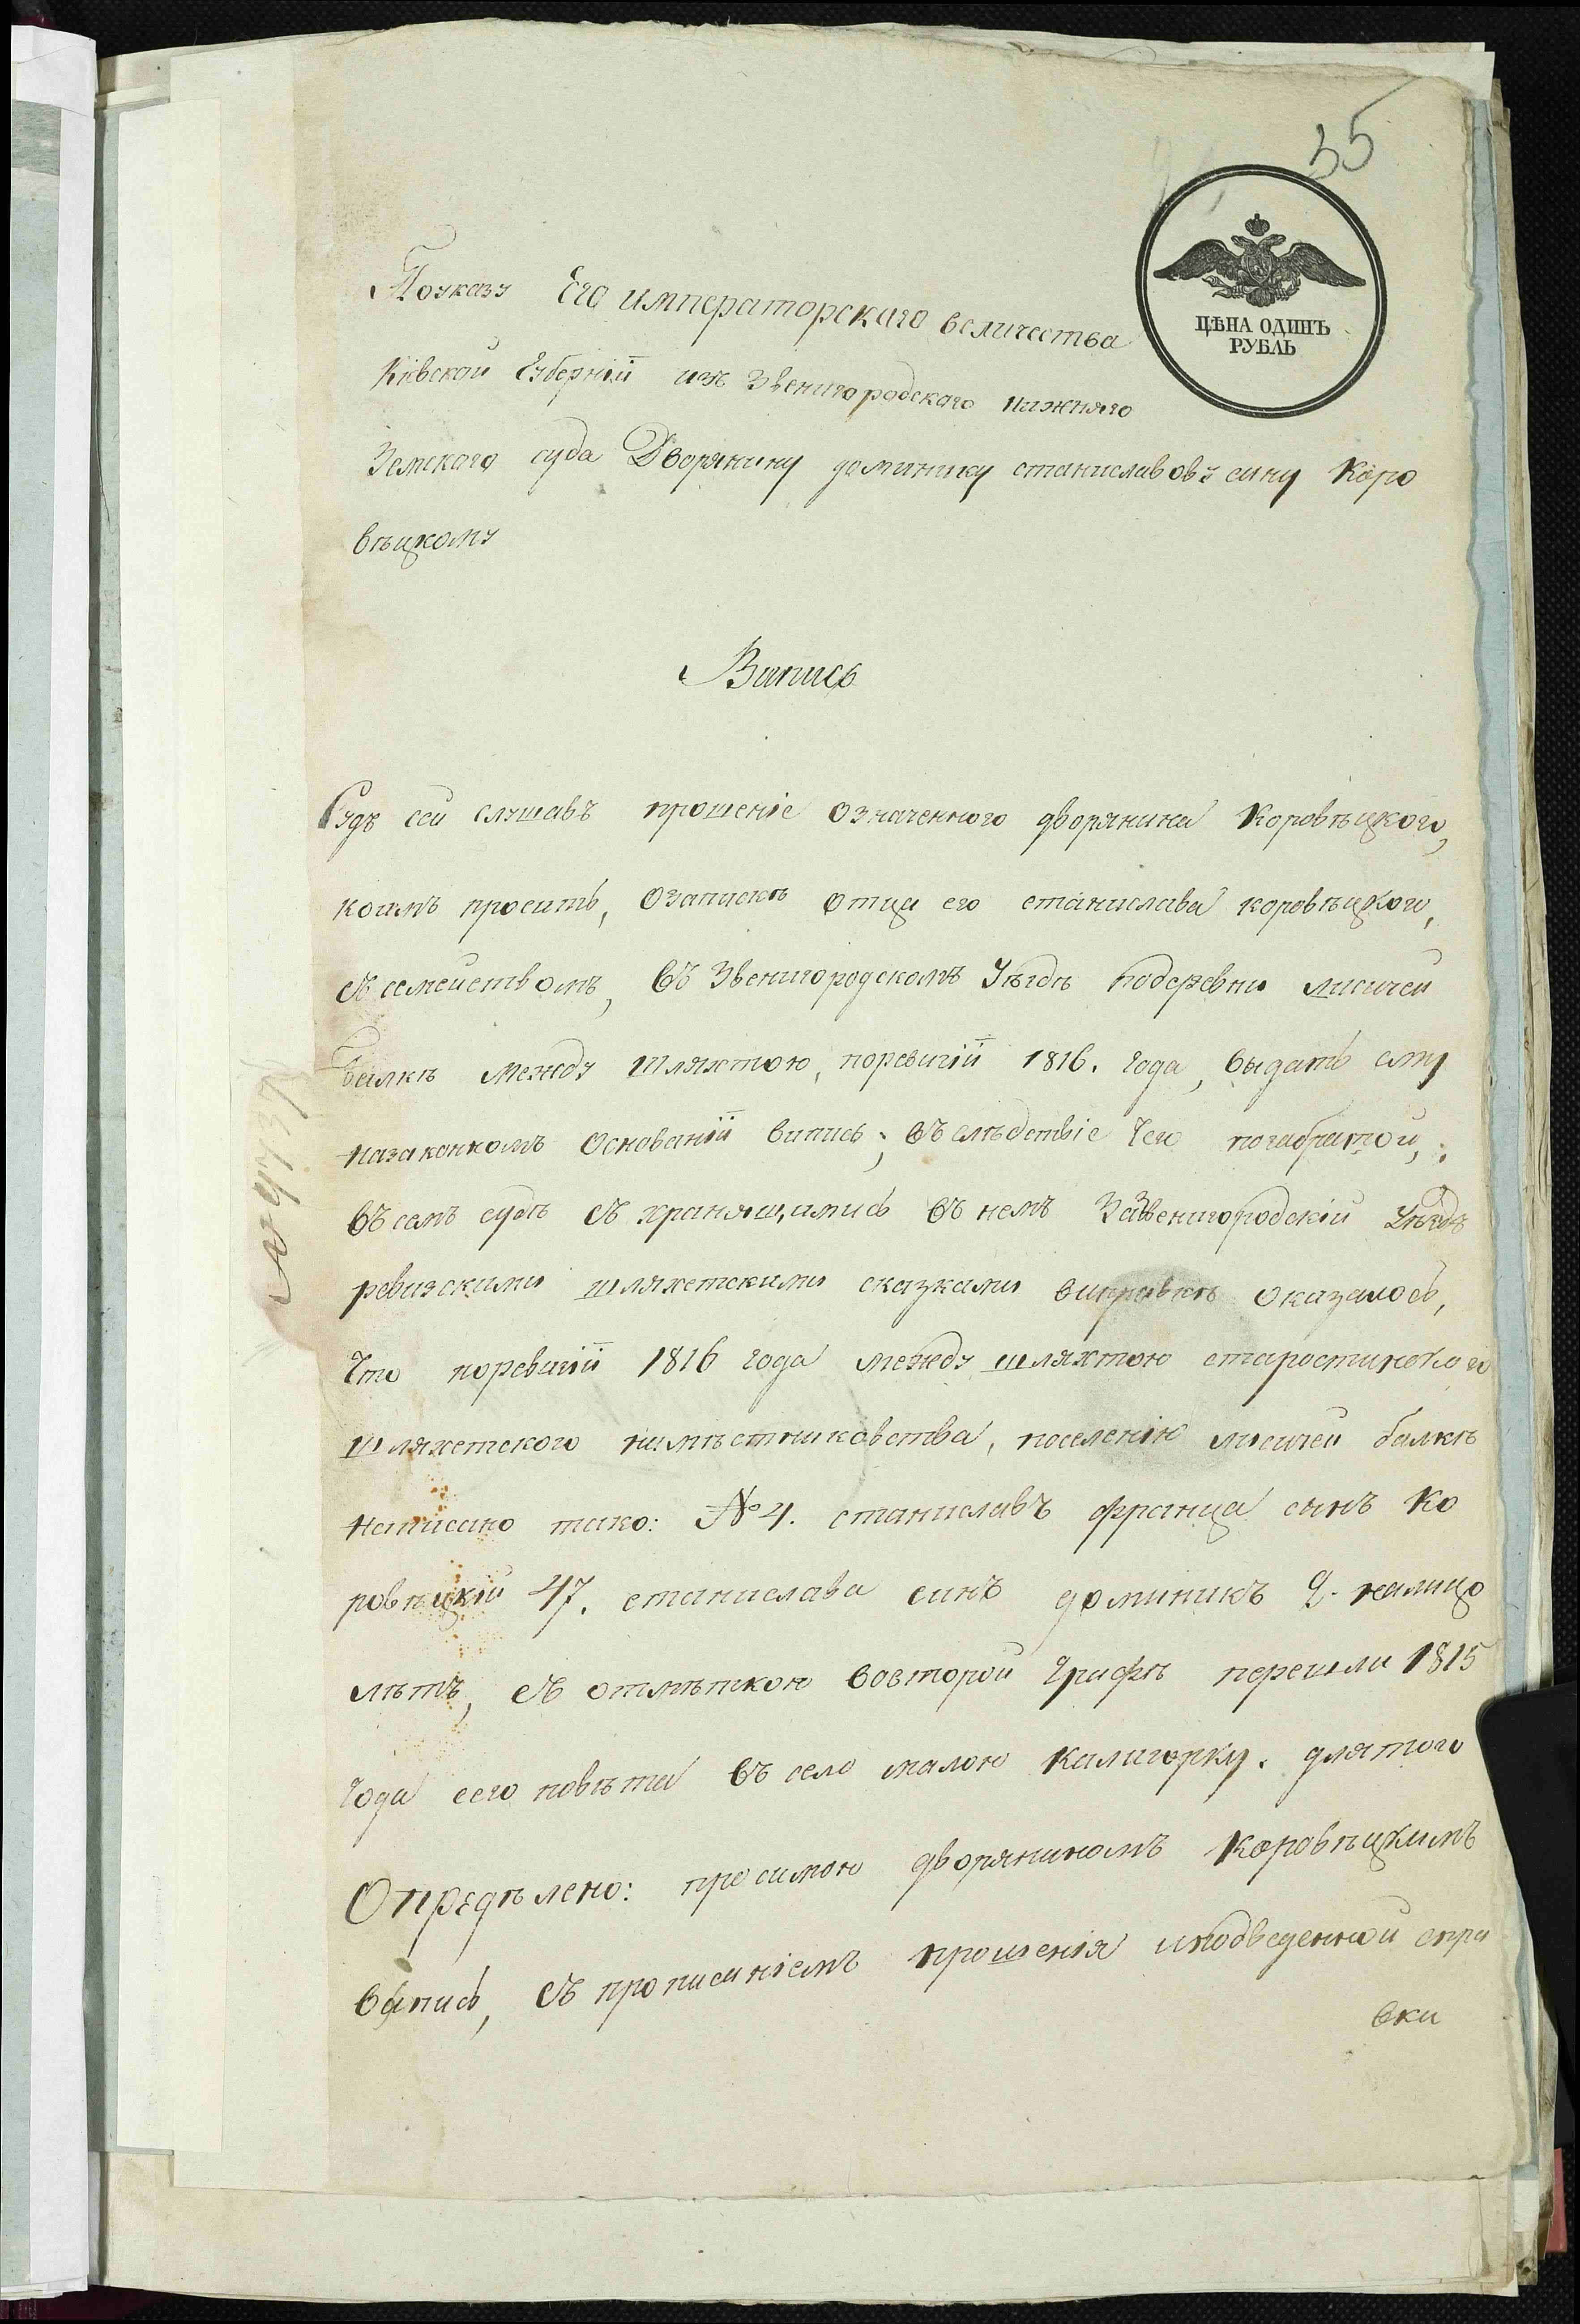 35
ЦѢНА ОДИНЪ
РУБЛЬ
Поуказу Его императорскаго величества
Кіевской Губерніи изъ Звенигородскаго нижняго
Земского суда Дворянину доминику станиславовъ сину Коро
вѣцкому
Випись
Судъ сей слушавъ прошеніе означенного дворянина Коровѣцкого,
коимъ просить, озапискѣ отца его станислава коровѣцкого,
съ семействомъ, въ Звенигородскомъ Уѣздѣ подеревни лисичей
балкѣ между шляхтою, поревизіи 1816. года, выдать ему
назаконномъ основаніи випись; въ слѣдствіе чего
въ семъ судѣ съ хранящимись въ немъ заЗвенигородскій Уѣздъ
ревизскими шляхетскими сказками виправкѣ оказалось,
что поревизіи 1816 года между шляхтою старостинского
шляхетского намѣстниковства, поселенію лисичей балкѣ
написано тако: № 4. станиславъ франца синъ Ко
ровѣцкій 47. станислава синъ доминикъ 9. налицо
лѣтъ, съ отмѣткою вовторой графѣ перешли 1815
года сего повѣта въ село малою калигорку. длятого
Опредѣлено: просимою дворяниномъ Коровѣцкимъ
выпись, съ прописаніемъ прошенія иподведенной спра
вки
№ 4737